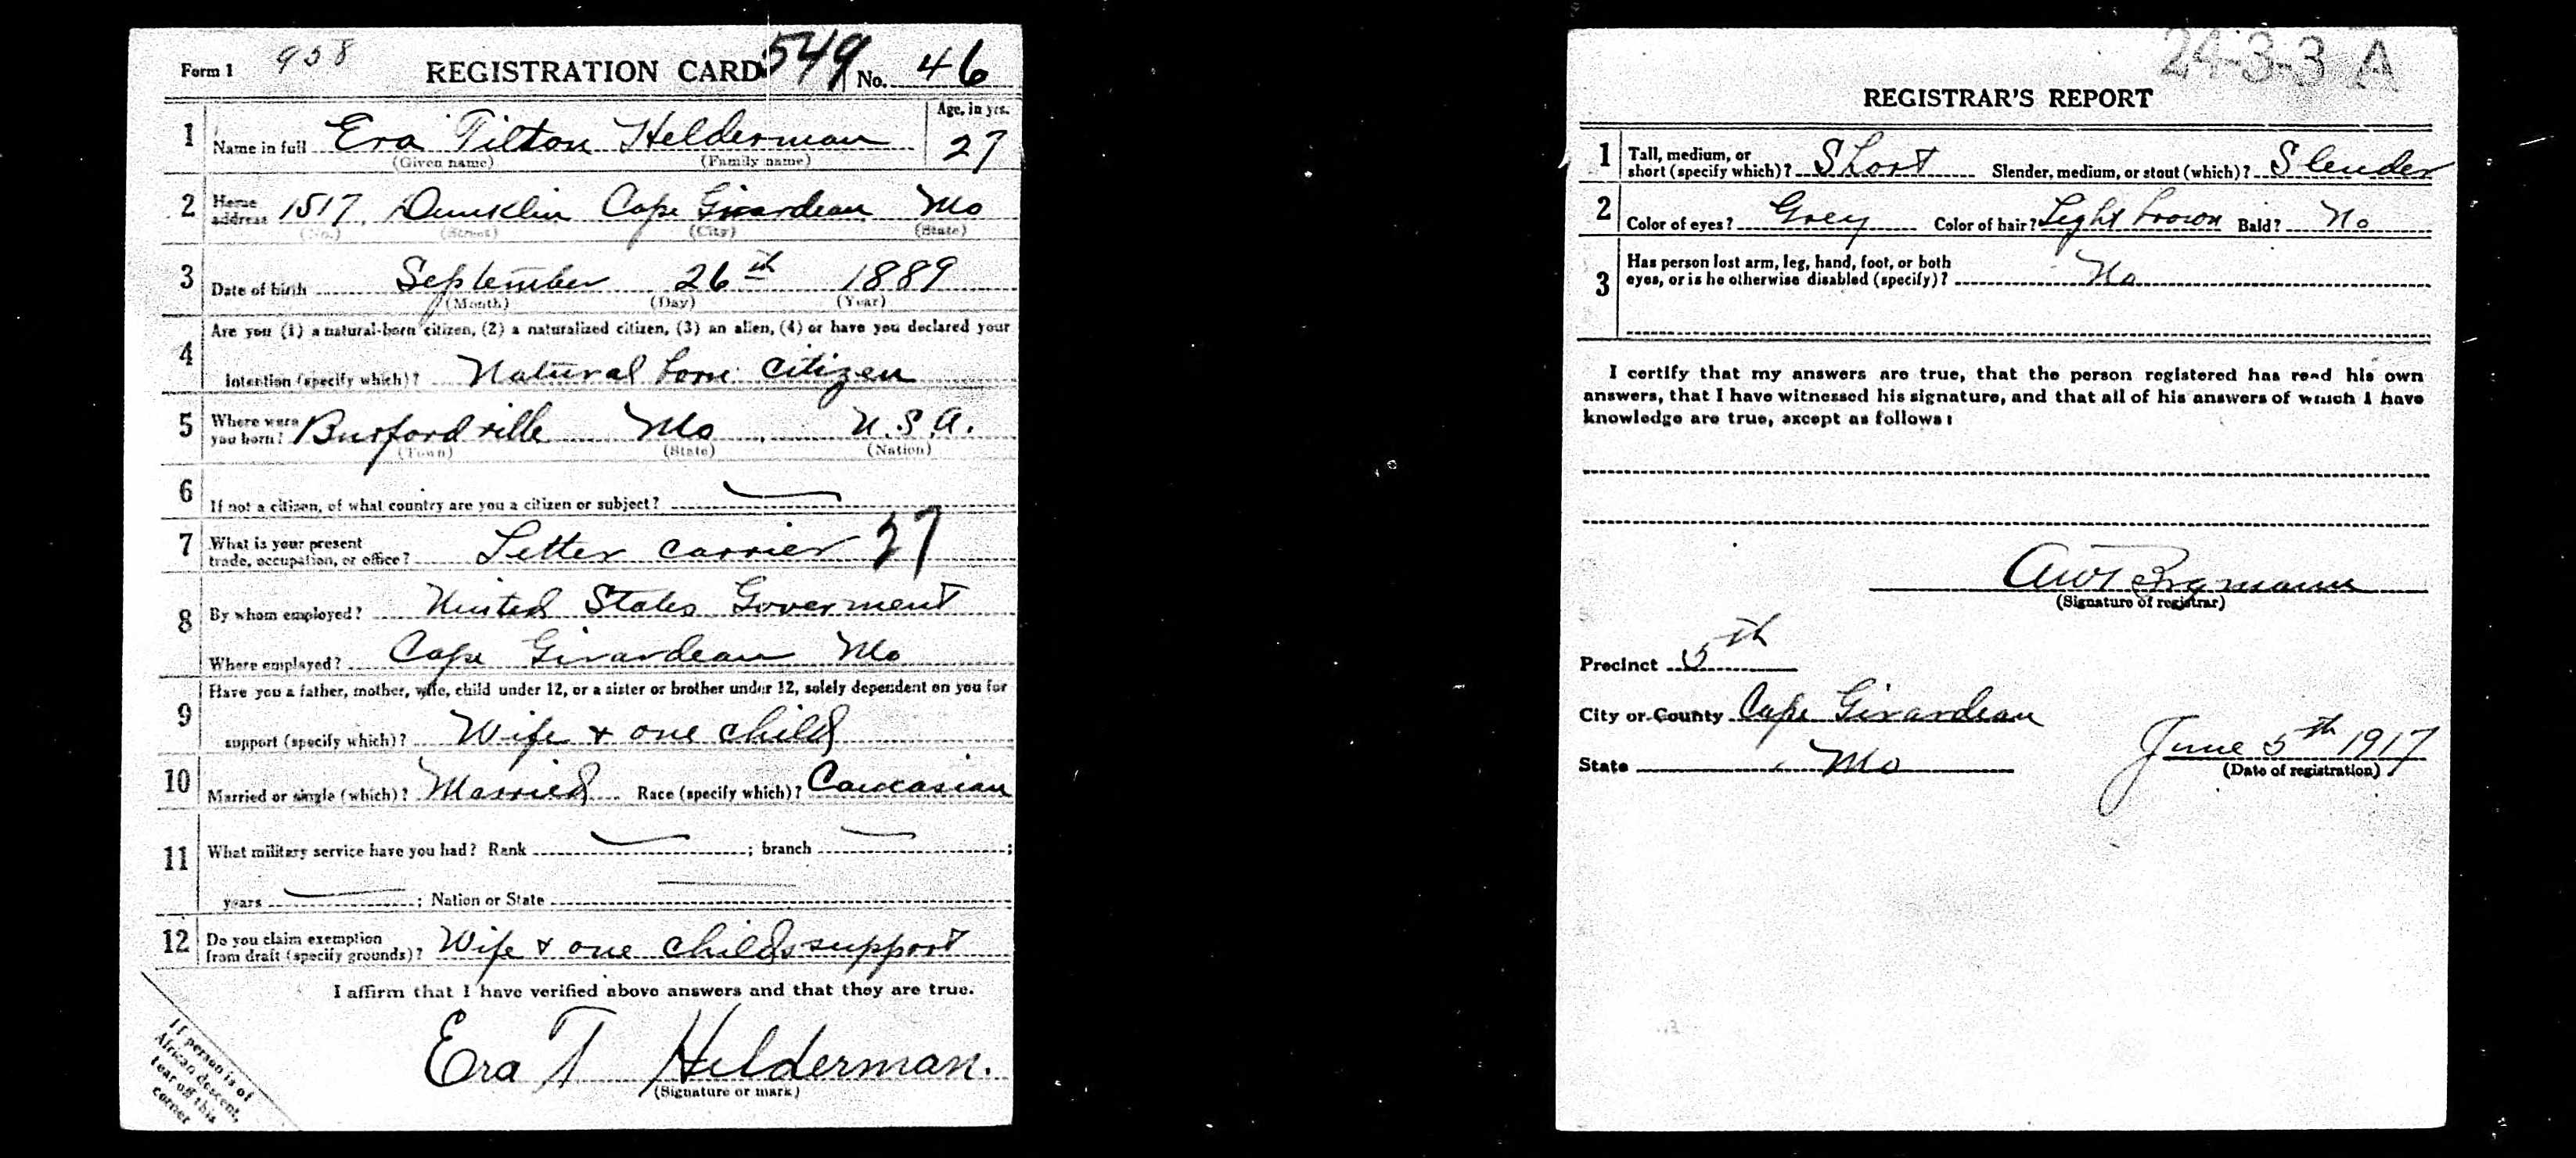 Form 1 958 REGISTRATION CARD 549 No. 46
1 Name in full Era Tilton Helderman Age, in yrs. 27
(Given name) (Family name)
2 Home address 1517 Dunklin Cape Girardeau Mo
(No.) (Street) (City) (State)
3 Date of birth September 26th 1889
(Month) (Day) (Year)
4 Are you (1) a natural-born citizen, (2) a naturalized citizen, (3) an alien, (4) or have you declared your
intention (specify which)? Natural born citizen
5 Where were you born? Burfordville Mo U.S.A.
(Town) (State) (Nation)
6 If not a citizen, of what country are you a citizen or subject?
7 What is your present
trade, occupation, or office? Letter carrier 27
8 By whom employed? United States Goverment
Where employed? Cape Girardeau Mo
9 Have you a father, mother, wife, child under 12, or a sister or brother under 12, solely dependent on you for
support (specify which)? Wife + one child
10 Married or single (which)? Married Race (specify which)? Caucasian
11 What military service have you had? Rank ; branch ;
years ; Nation or State
12 Do you claim exemption
from draft (specify grounds)? Wife + one childs support
I affirm that I have verified above answers and that they are true.
Era T Helderman.
(Signature or mark)
If person is of
African descent,
tear off this
corner
24-3-3 A
REGISTRAR'S REPORT
1 Tall, medium, or
short (specify which)? Short Slender, medium, or stout (which)? Slender
2 Color of eyes? Grey Color of hair? Light brown Bald? No
3 Has person lost arm, leg, hand, foot, or both
eyes, or is he otherwise disabled (specify)? No
I certify that my answers are true, that the person registered has read his own
answers, that I have witnessed his signature, and that all of his answers of which I have
knowledge are true, except as follows:
(Signature of registrar)
Precinct 5th
City or County Cape Girardeau
State Mo
June 5th 1917
(Date of registration)